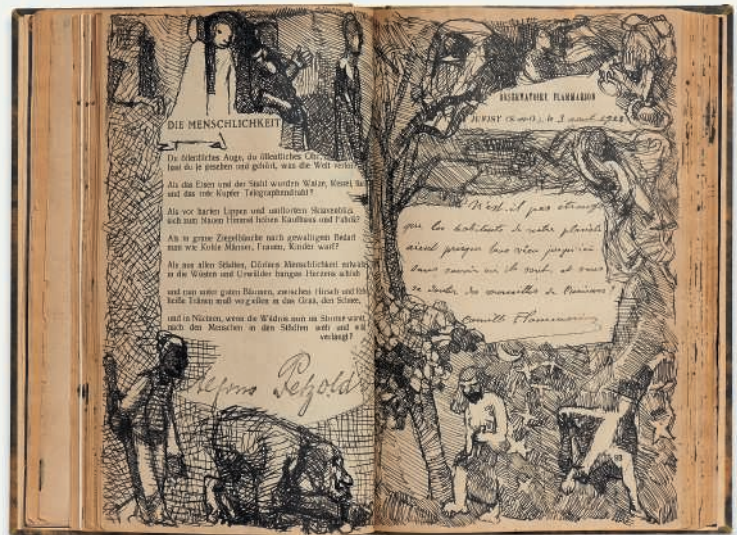 DIE MENSCHLICHKEIT
Du öffentliches Auge, du öffentliches Ohr,
hast du je gesehen und gehört, was die Welt
Als das Eisen und der Stahl wurden Walze, Kessel,
und das rote Kupfer Telegraphendraht?
Als vor harten Lippen und
sich zum Neuen Himmel hoben Kaufhaus und Fabrik?
Als in graue Ziegelbäuche nach gewaltigem Bedarf
man wie Kohle Männer, Frauen, Kinder warf?
Als aus allen Städten, Dörfern Menschlichkeit
in die Wüsten und Urwälder bangen Herzens schlich
und nun unter guten Bäumen, zwischen Hirsch und
heiße Tränen muß vergießen in das Gras, den Schnee,
und in Nächten, wenn die Wildnis nun im Sturme
nach den Menschen in den Städten weh und
verlangt?
Alfons Petzold
OBSERVATOIRE FLAMMARION
JUVISY (S.-et-O.), le 3
N'est-il pas étrange
que les habitants de notre planète
aient presque tous vécu jusqu'ici
sans savoir où ils sont, et sans
se douter des merveilles de l'univers?
Camille Flammarion